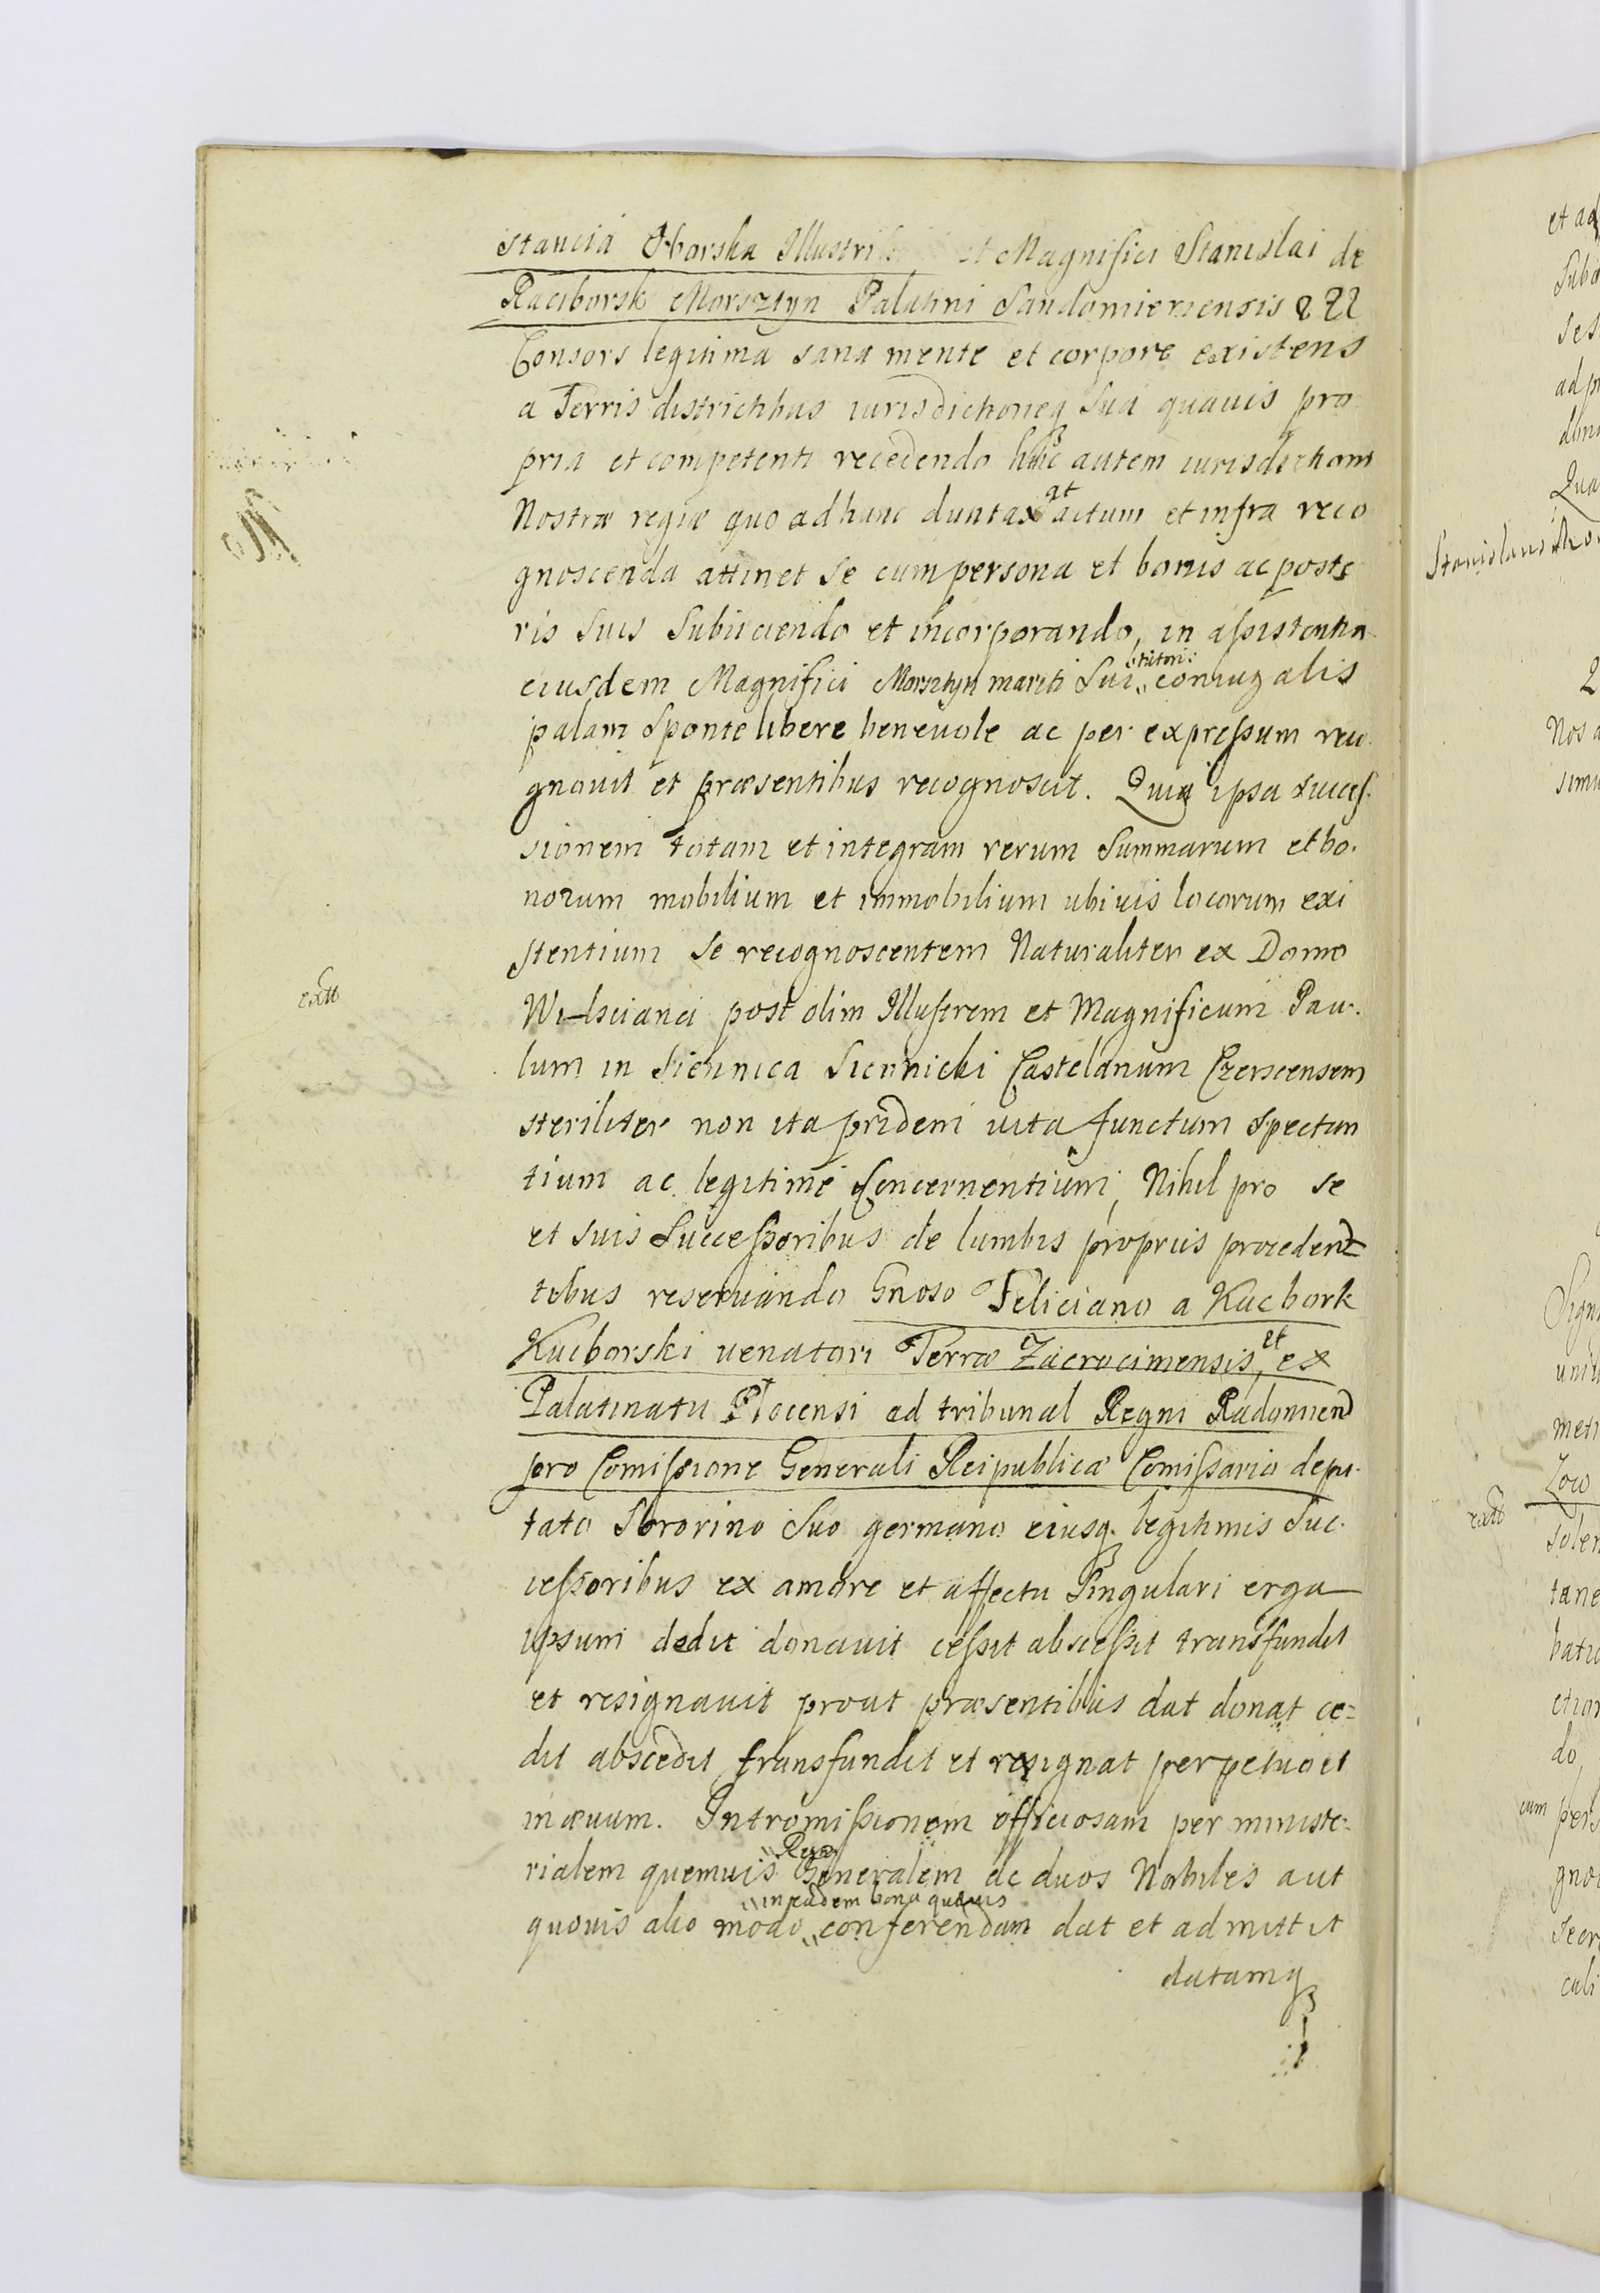 stancia Oborska Illustri et Magnifici Stanislai de
Raciborsk Morsztyn Palatini Sandomiriensis
Consors legitima sana mente et corpore existens
a Terris districtibus iurisdictioneq sua quauis pro
pria et competenti recedendo huic autem iurisdictioni
Nostræ regiæ quo ad hunc duntaxat actum et infra reco
gnoscenda attinet se cum persona et bonis ac poste
ris suis subiiciendo et incorporando, in assistentia
eiusdem Magnifici Morsztyn mariti sui tutori: coniugalis
palam sponte libere beneuole ac per expressum reco
gnouit et præsentibus recognoscit. Quia ipsa succes.
sionem totam et integram rerum summarum et bo.
norum mobilium et immobilium ubiuis locorum exi
stentium se recognoscentem Naturaliter ex Domo
post olim Illustrem et Magnificum Pau.
lum in Siennica Siennicki Castelanum Czerscensem
steriliter non ita pridem uita functum spectan
tium ac legitimè concernentium, Nihil pro se
et suis Successoribus de lumbis propriis procedent
tibus reseruando Gnoso Feliciano a Kucbork
Kucborski uenatori Terræ Zacrocimensis, et ex
Palatinatu Plocensi ad tribunal Regni Radomien
pro Comissione Generali Reipublicæ Comissario depu.
tato Sororino suo germano eiusq. legitimis Suc.
cessoribus ex amore et affectu singulari erga
ipsum dedit donauit cessit abscessit transfundit
et resignauit prout præsentibus dat donat ce=
dit abscedit transfundit et resignat perpetuo et
in æuum. Intromissionem officiosam per ministe=
rialem quemuis Regni Generalem ac duos Nobiles aut
quouis alio modo in eadem bona quæuis conferendam dat et admittit
datamq
extt
et ad
ad p
Qua
Stanislaus
Nos a
Signu
Zow
extt
soler
tane
do
cum pers